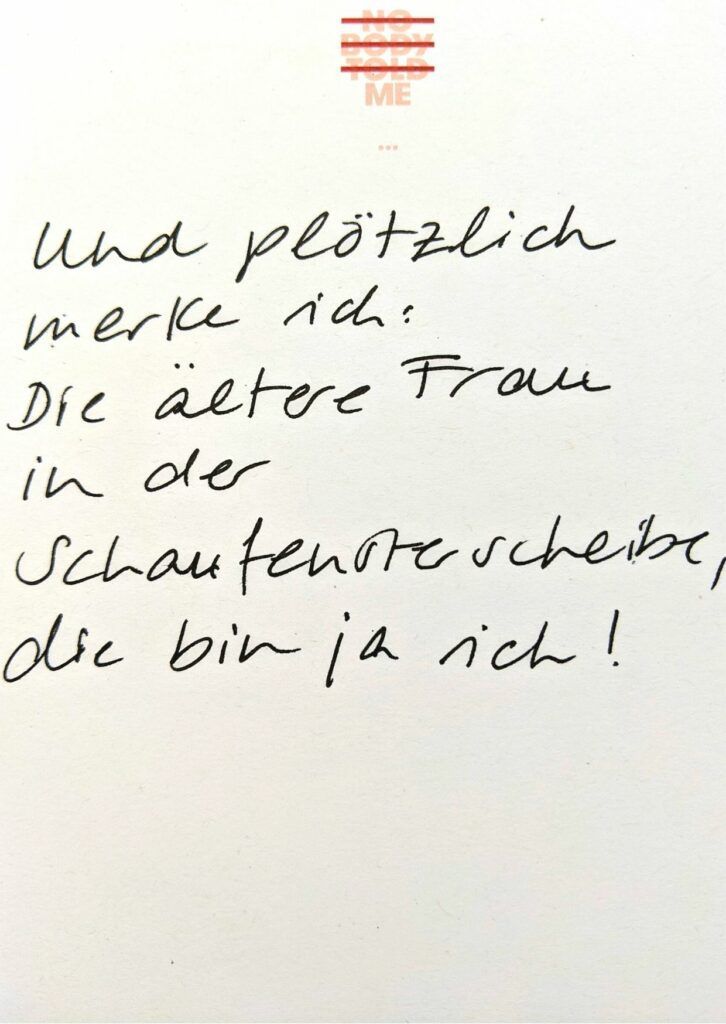 NO
BODY
TOLD
ME
...
Und plötzlich
merke ich:
Die ältere Frau
in der
Schaufensterscheibe,
die bin ja ich!